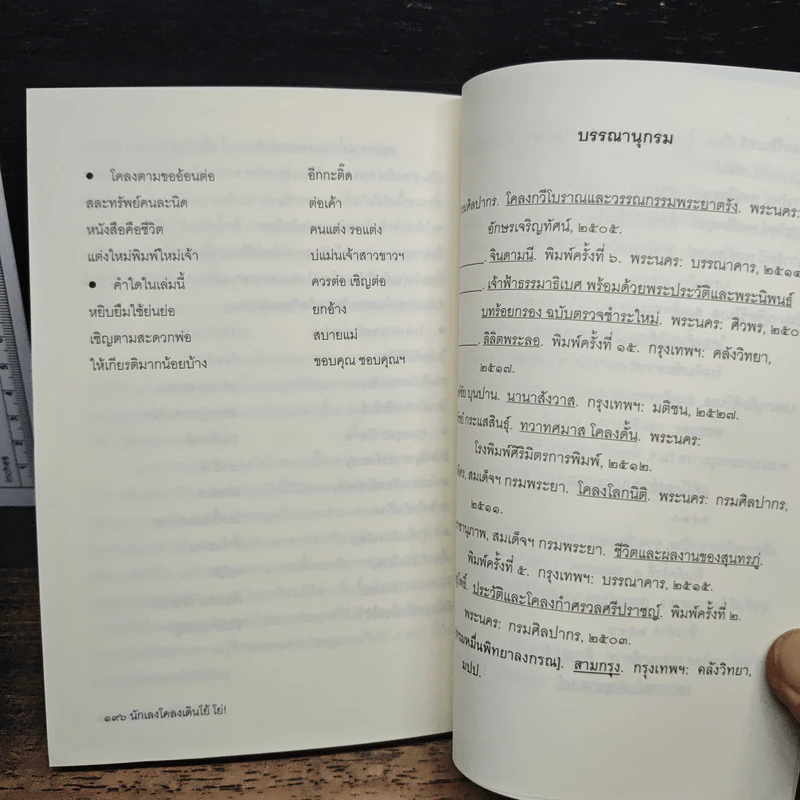 ● โคลงตามขออ้อนต่อ อีกกะติ๊ด
สละทรัพย์คนละนิด ต่อเค้า
หนังสือคือชีวิต คนแต่ง รอแต่ง
แต่งใหม่พิมพ์ใหม่เจ้า บ่แม่นเจ้าสาวขาวฯ
● คำใดในเล่มนี้ ควรต่อ เชิญต่อ
หยิบยืมใช้ย่นย่อ ยกอ้าง
เชิญตามสะดวกพ่อ สบายแม่
ให้เกียรติมากน้อยบ้าง ขอบคุณ ชอบคุณฯ
๑๙๖ นักเลงโคลงเดินโย้ โย่!
บรรณานุกรม
กรมศิลปากร. โคลงกวีโบราณและวรรณกรรมพระยาตรัง. พระนคร:
อักษรเจริญทัศน์, ๒๕๐๕.
_____. จินดามนี. พิมพ์ครั้งที่ ๖. พระนคร: บรรณาคาร, ๒๕๑๔
_____. เจ้าฟ้าธรรมาธิเบศ พร้อมด้วยพระประวัติและพระนิพนธ์
บทร้อยกรอง ฉบับตรวจชำระใหม่. พระนคร: ศิวพร, ๒๕๐
_____. ลิลิตพระลอ. พิมพ์ครั้งที่ ๑๕. กรุงเทพฯ: คลังวิทยา,
๒๕๑๗.
บุนปาน. นานาสังวาส. กรุงเทพฯ: มติชน, ๒๕๒๗.
กระแสสินธุ์. ทวาทศมาส โคลงดั้น. พระนคร:
โรงพิมพ์ศิริมิตรการพิมพ์, ๒๕๑๒.
สมเด็จฯ กรมพระยา. โคลงโลกนิติ. พระนคร: กรมศิลปากร,
๒๕๑๑.
ชานุภาพ, สมเด็จฯ กรมพระยา. ชีวิตและผลงานของสุนทรภู่.
พิมพ์ครั้งที่ ๕. กรุงเทพฯ: บรรณาคาร, ๒๕๑๕.
ประวัติและโคลงกำศรวลศรีปราชญ์. พิมพ์ครั้งที่ ๒.
พระนคร: กรมศิลปากร, ๒๕๐๓.
กรมหมื่นพิทยาลงกรณ]. สามกรุง. กรุงเทพฯ: คลังวิทยา,
มปป.
inches